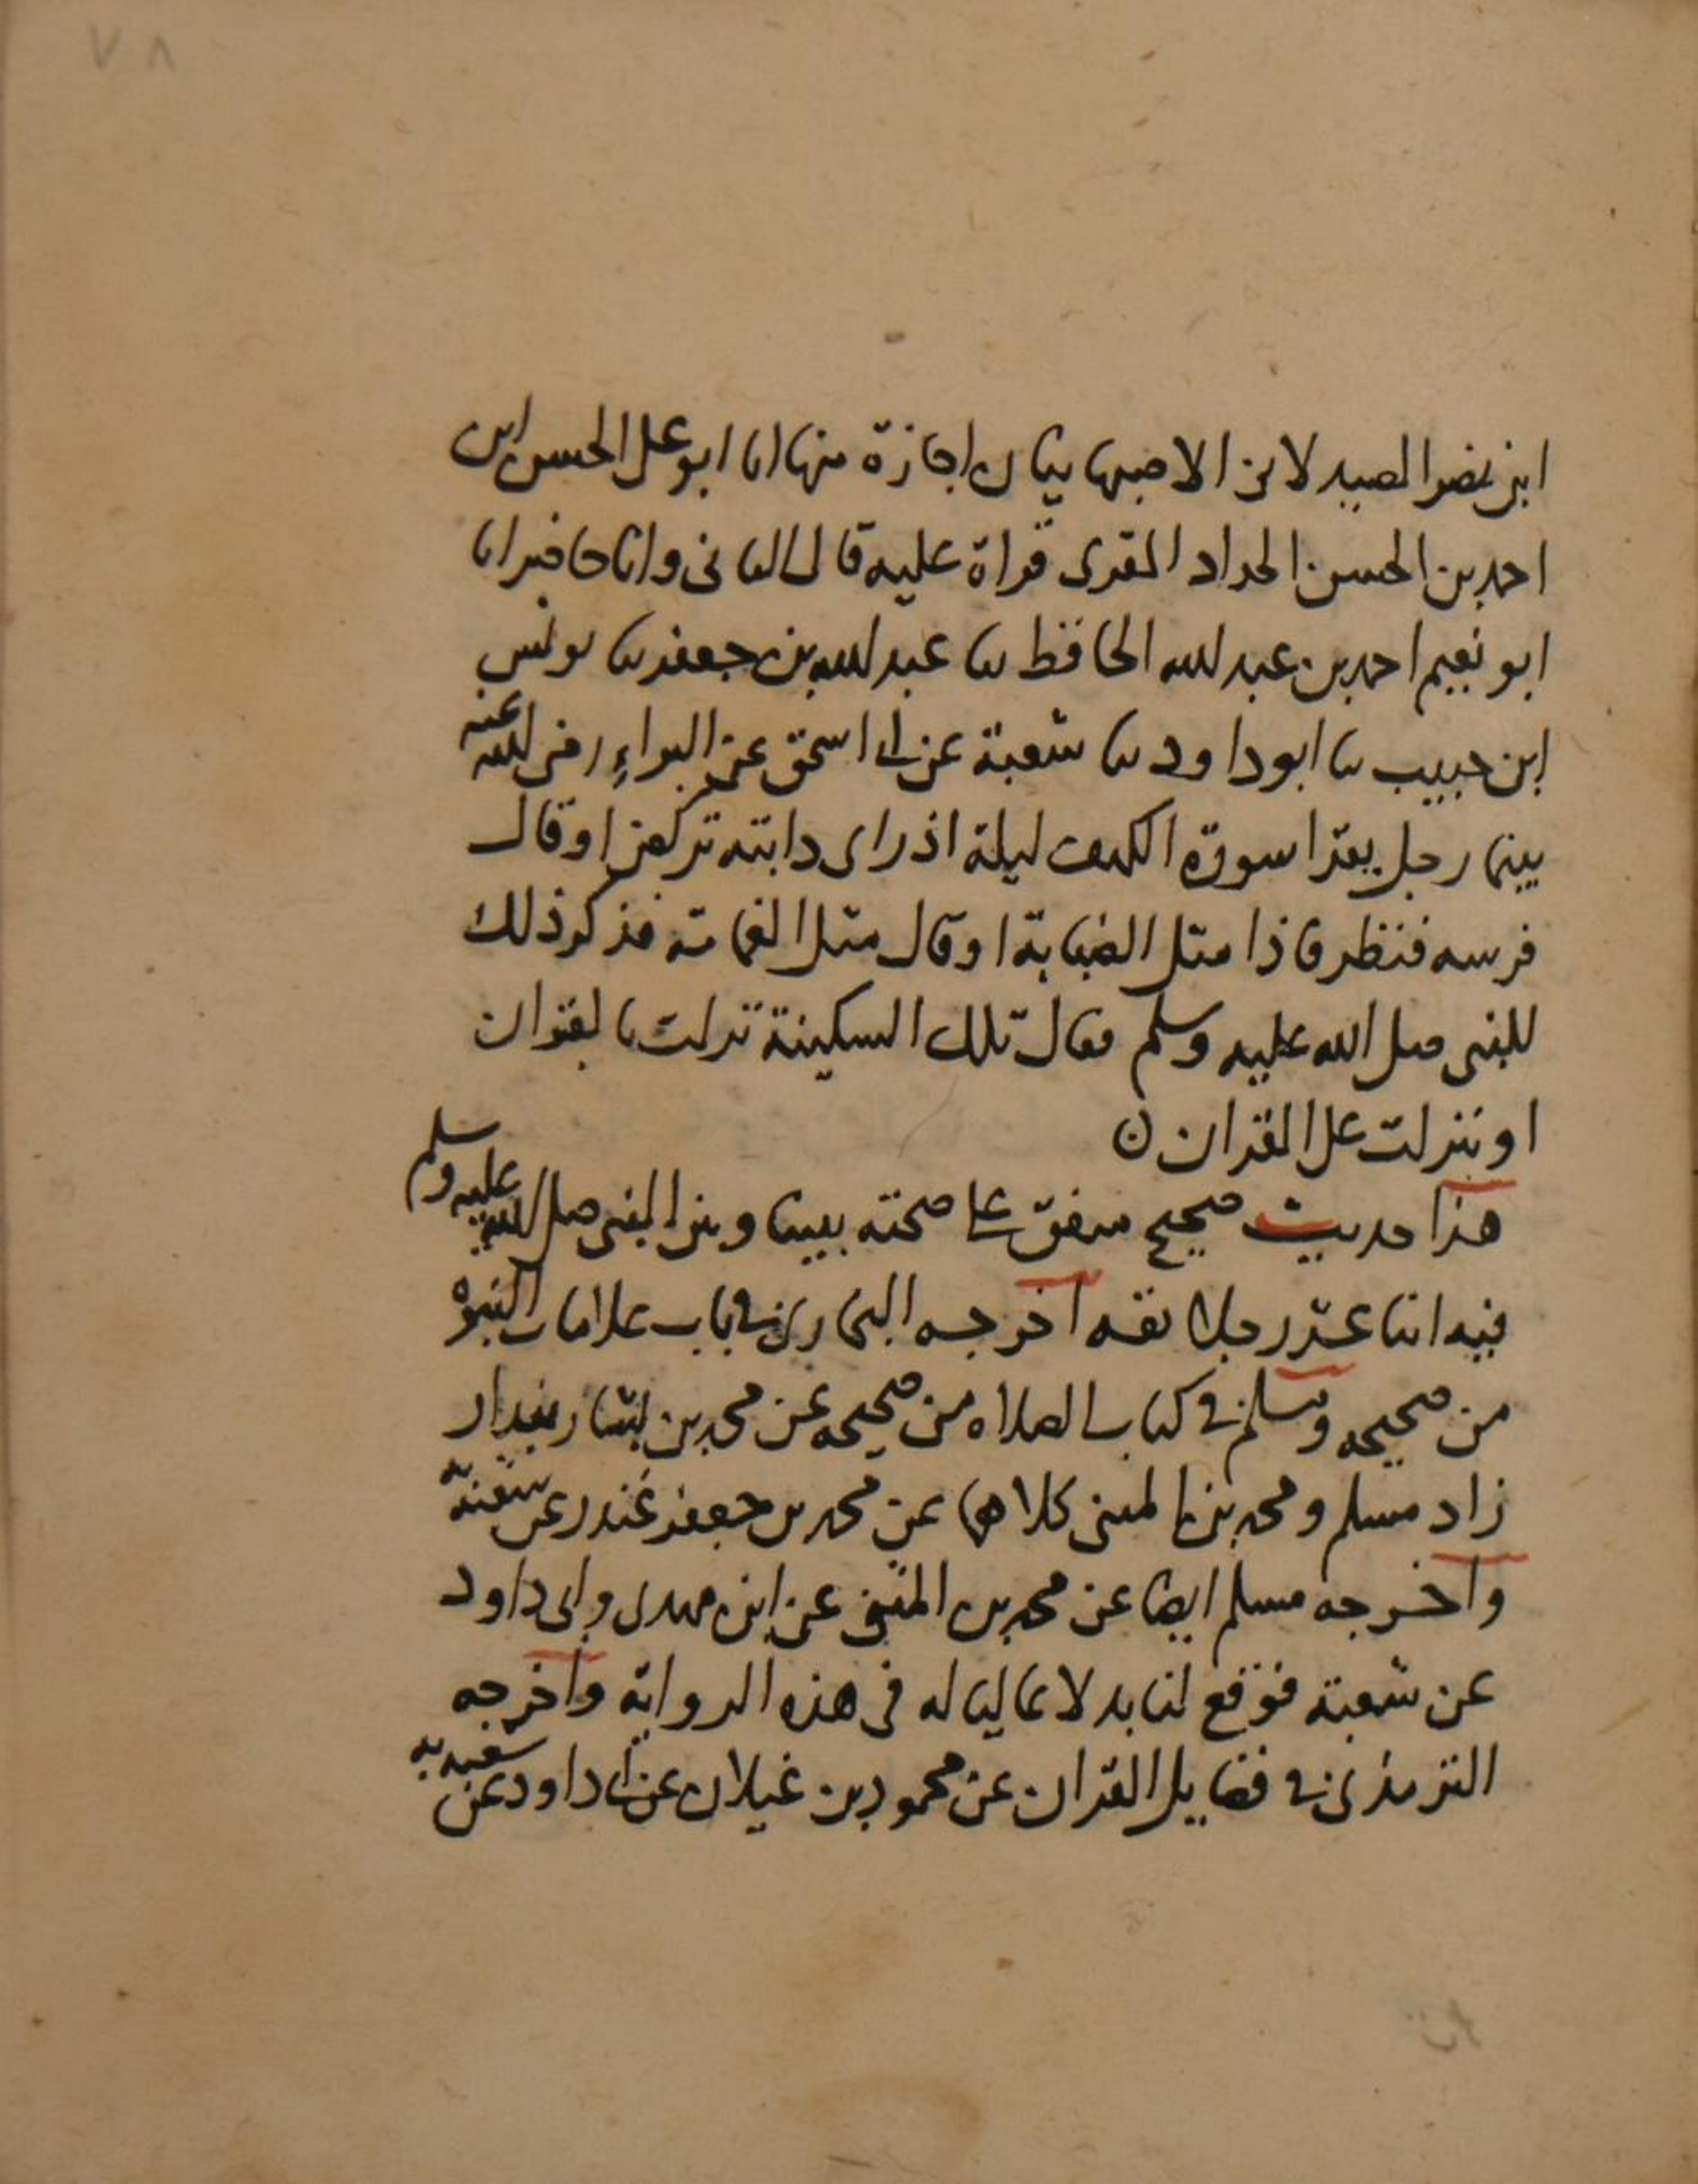 ٧٨
ابن نصر الصيدلاني الاصبهانيان اجازة منها انا ابو علي الحسن ابن
احمد بن الحسن الحداد المقرى قراة عليه قال الثاني وانا حاضر انا
ابو نعيم احمد بن عبد الله الحافظ ثنا عبد الله بن جعفر ثنا يونس
ابن حبيب ثنا ابو داود ثنا شعبة عن ابي اسحق عن البراء رضي الله عنه
بينما رجل يقرا سورة الكهف ليلة اذ راى دابته تركض او قال
فرسه فنظر فاذا مثل الضبابة او قال مثل الغمامة فذكر ذلك
للنبي صلى الله عليه وسلم فقال تلك السكينة نزلت بالقران
او تنزلت على القران ن
هذا حديث صحيح متفق على صحته بيننا وبين النبي صلى الله عليه وسلم
فيه اثنا عشر رجلا ثقه اخرجه البخاري في باب علامات النبوة
من صحيحه ومسلم في كتاب الصلاه من صحيحه عن محمد بن بشار بندار
زاد مسلم ومحمد بن المثنى كلاهما عن محمد بن جعفر غندر عن شعبة
واخرجه مسلم ايضا عن محمد بن المثنى عن ابن مهدى وابى داود
عن شعبة فوقع لنا بدلا عاليا له في هذه الرواية واخرجه
الترمذي في فضايل القران عن محمود بن غيلان عن ابي داود عن شعبة به